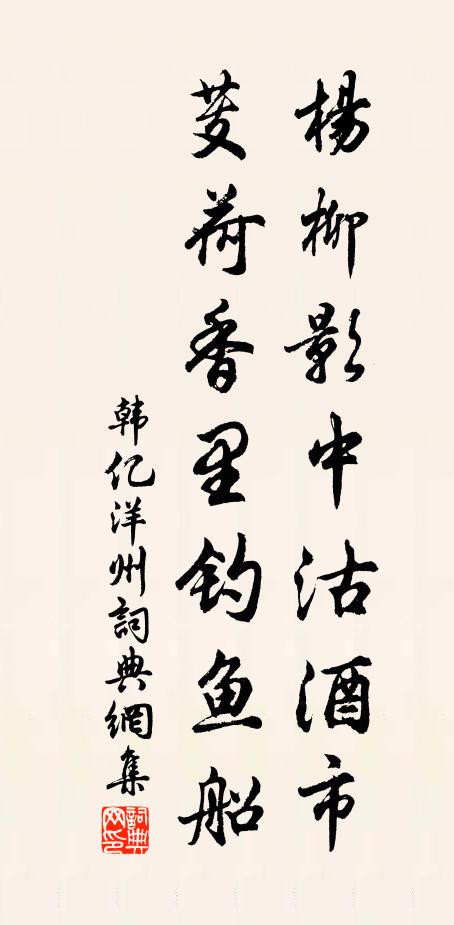 楊柳影中沽酒市
芰荷香里釣魚船
韩亿洋州詞典網集
詞典網印